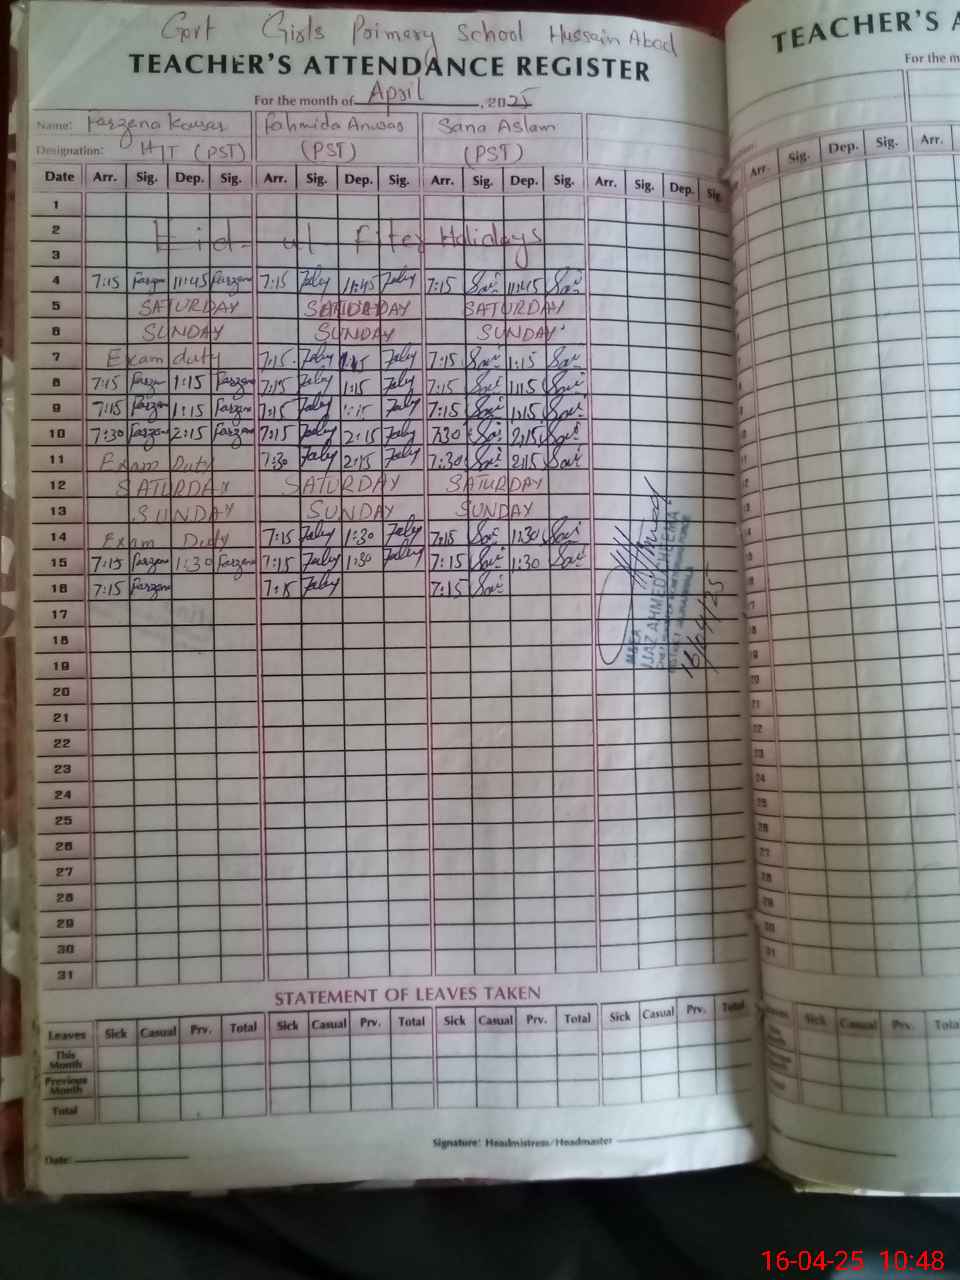 Govt Girls Primary School Hussain Abad
TEACHER'S ATTENDANCE REGISTER
For the month of April, 2025
Name: Farzana Kausar Fahmida Anwar Sana Aslam
Designation: HT (PST) (PST) (PST)
Date Arr. Sig. Dep. Sig. Arr. Sig. Dep. Sig. Arr. Sig. Dep. Sig. Arr. Sig. Dep. Sig.
1
2 Eid-ul Fiter Holidays
3
4 7:15 Farzana 11:45 Farzana 7:15 11:45 7:15 11:45
5 SATURDAY SATURDAY SATURDAY
6 SUNDAY SUNDAY SUNDAY
7 Exam duty 7:15 1:15 7:15 1:15
8 7:15 Farzana 1:15 Farzana 7:15 1:15 7:15 1:15
9 7:15 Farzana 1:15 Farzana 7:15 1:15 7:15 1:15
10 7:30 Farzana 2:15 Farzana 7:15 2:15 7:30 2:15
11 Exam Duty 7:30 2:15 7:30 2:15
12 SATURDAY SATURDAY SATURDAY
13 SUNDAY SUNDAY SUNDAY
14 Exam Duty 7:15 1:30 7:15 1:30
15 7:15 Farzana 1:30 Farzana 7:15 1:30 7:15 1:30
16 7:15 Farzana 7:15 7:15
17
18
19
20
21
22
23
24
25
26
27
28
29
30
31
IJAZ AHMED CHEEMA
16/04/25
STATEMENT OF LEAVES TAKEN
Leaves Sick Casual Prv. Total Sick Casual Prv. Total Sick Casual Prv. Total Sick Casual Prv. Total
This Month
Previous Month
Total
Signature: Headmistress/Headmaster
Date:
TEACHER'S A
For the m
Arr. Sig. Dep. Sig. Arr.
Sick Casual Prv. Tota
16-04-25 10:48